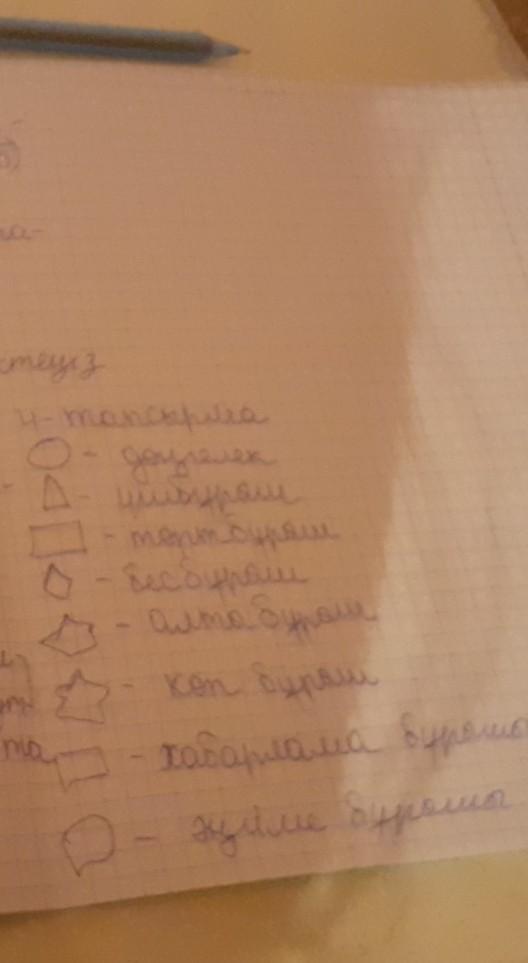 4-тапсырма
- дөңгелек
- үшбұрыш
- төртбұрыш
- бесбұрыш
- алтабұрыш
- көп бұрыш
- хабарлама бұрышы
- әңгіме бұрышы